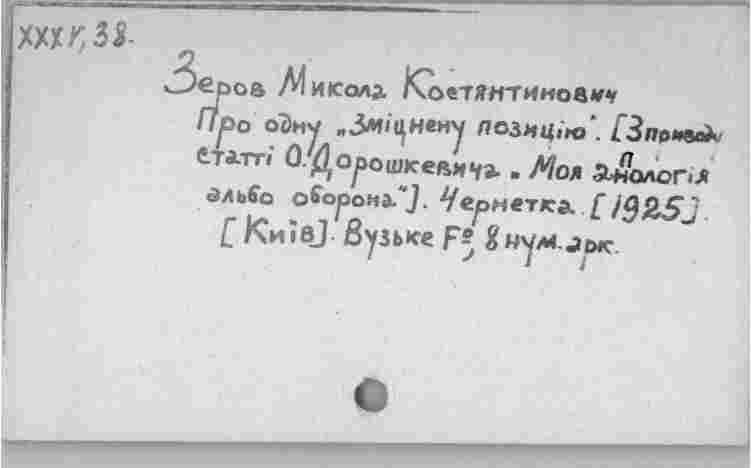 XXXV, 38.
Зеров Микола Костянтинович
Про одну „Зміцнену позицію". [З приводу
статті О. Дорошкевича „Моя апологія
альбо оборона"]. Чернетка. [1925].
[Київ]. Вузьке Fº, 8 нум. арк.